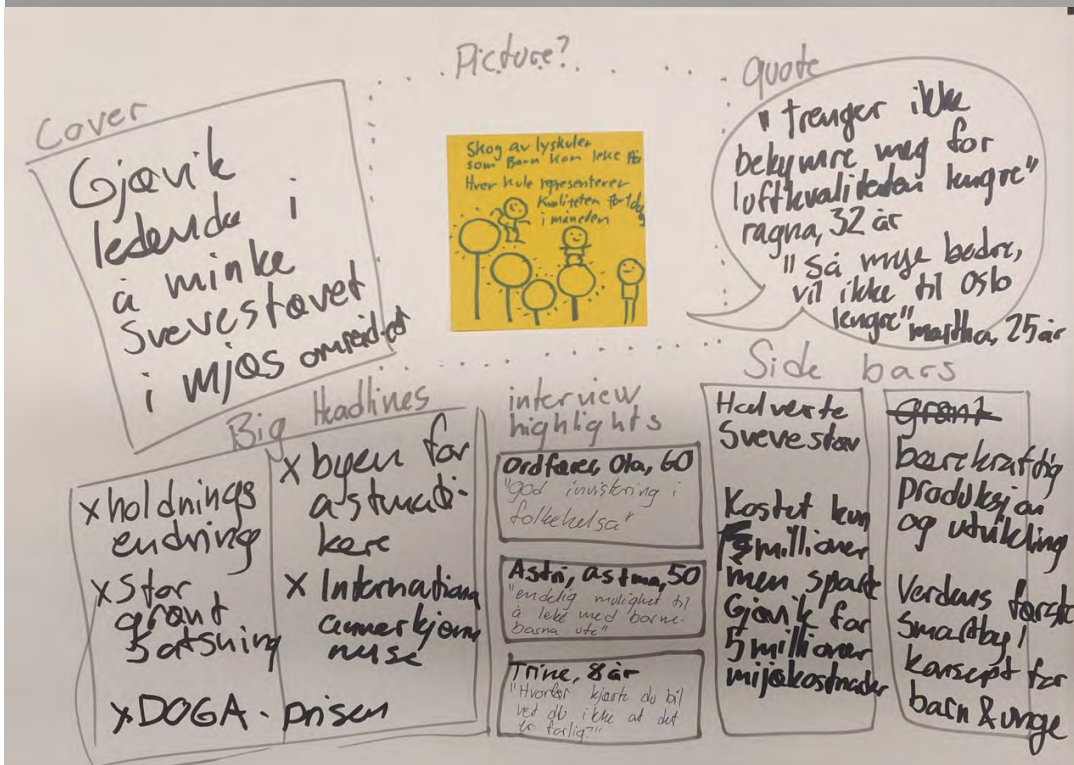 Picture?
Cover
Gjøvik
ledende i
å minke
svevestøvet
i mjøs området
Skog av lyskuler
som Barn kan leke på
Hver kule representerer
kvaliteten for 1 dag
i måneden
quote
"trenger ikke
bekymre meg for
luftkvaliteten lengre"
ragna, 32 år
"Så mye bedre,
vil ikke til oslo
lengre" martha, 25 år
Big Headlines
x holdnings
endring
x Stor
grønt
satsning
x DOGA - prisen
x byen for
astmati-
kere
x Internationa
annerkjenne
nelse
interview
highlights
Ordfører, Ola, 60
"god invistering i
folkehelsa"
Astri, astma, 50
"endelig mulighet til
å leke med barne-
barna ute"
Trine, 8 år
"Hvorfor kjørte du bil
vet du ikke at det
er farlig?"
Side bars
Halverte
Svevestøv
Kostet kun
millioner
men sparte
Gjøvik for
5 millioner
mijøkostnader
grønt
bærekraftig
produksjon
og utvikling
Verdens første
smartby/
konsept for
barn & unge